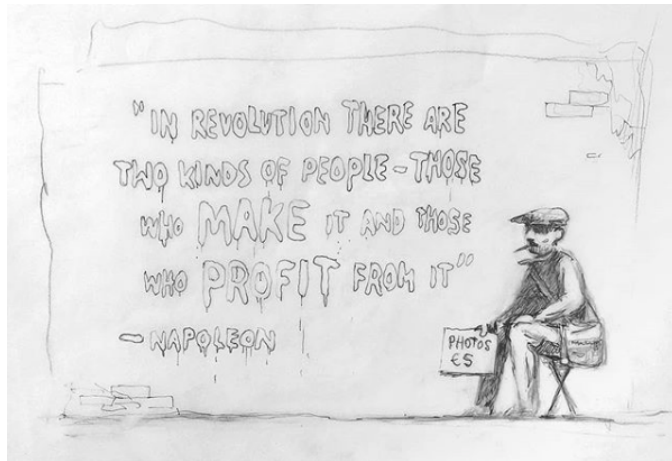 "IN REVOLUTION THERE ARE
TWO KINDS OF PEOPLE - THOSE
WHO MAKE IT AND THOSE
WHO PROFIT FROM IT"
- NAPOLEON
PHOTOS
€5